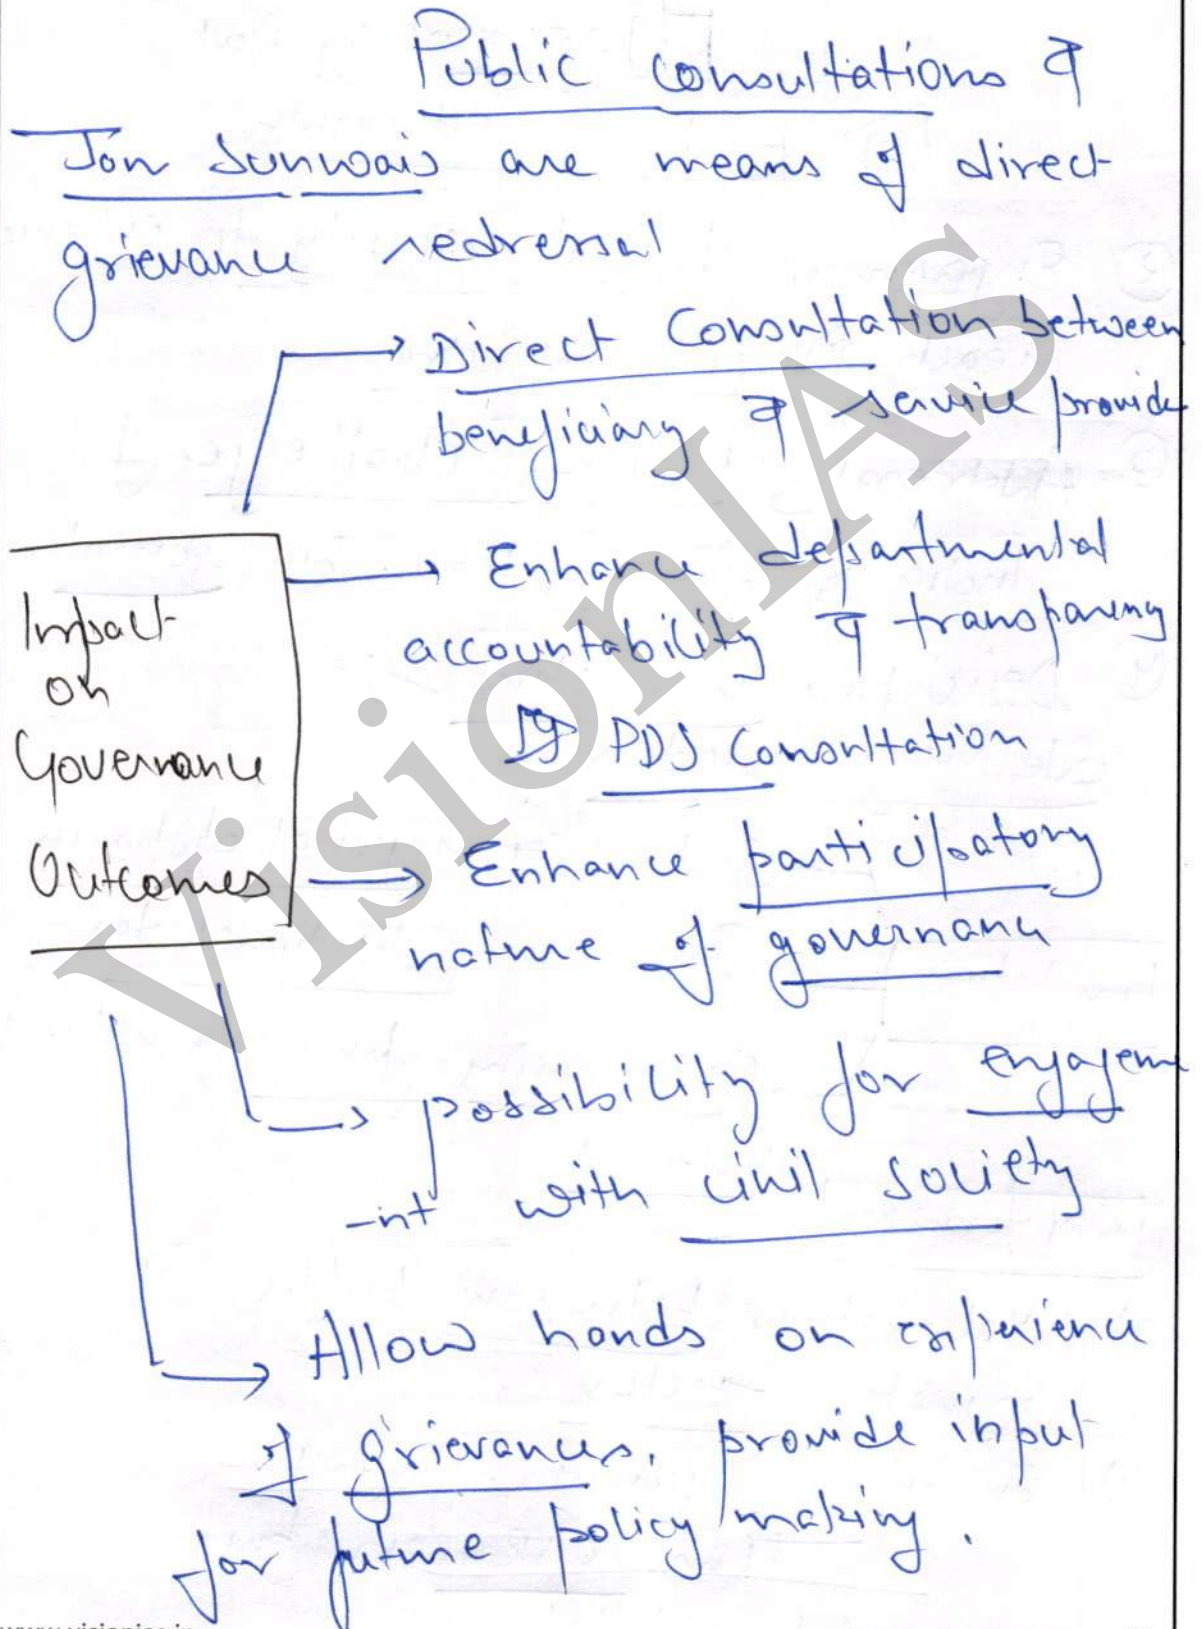 Public consultations &
Jan Sunwais are means of direct
grievance redressal
→ Direct Consultation between
beneficiary & service provide
→ Enhance departmental
accountability & transparency
Eg PDS Consultation
Impact
on
Governance
Outcomes
→ Enhance participatory
nature of governance
→ possibility for engagem
-nt with civil society
→ Allow hands on experience
of grievances, provide input
for future policy making.
VisionIAS